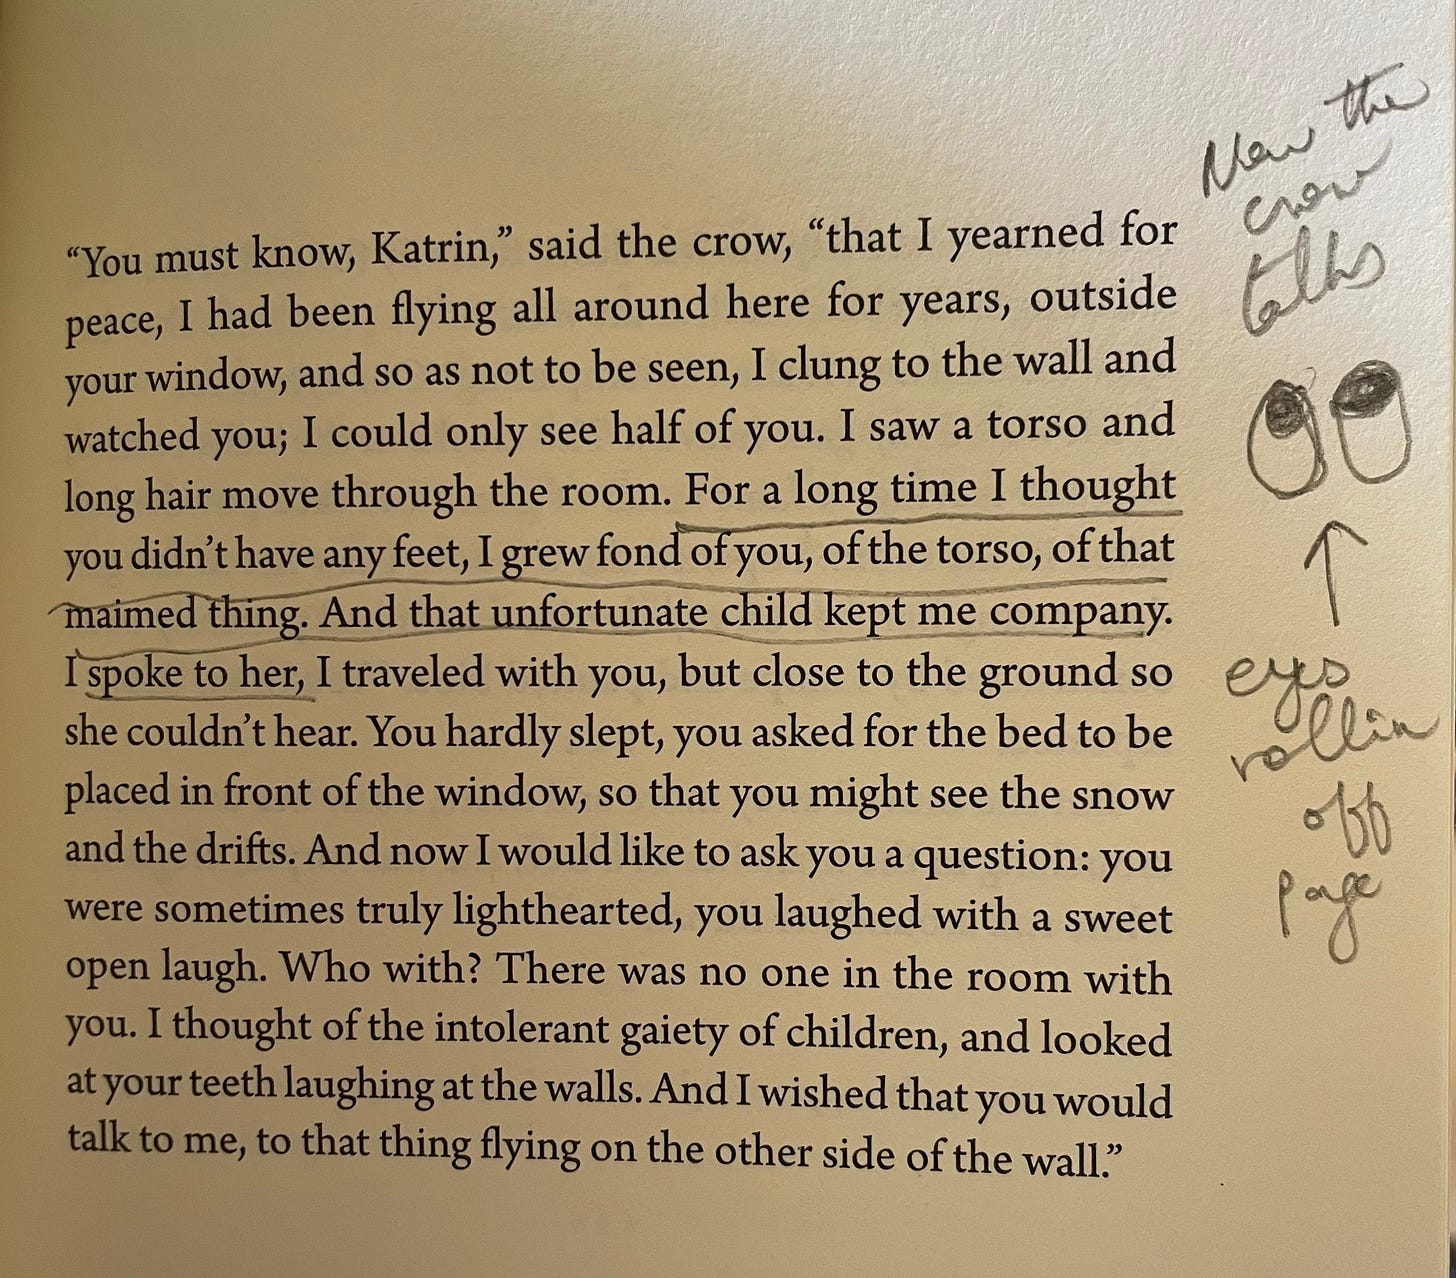 “You must know, Katrin,” said the crow, “that I yearned for
peace, I had been flying all around here for years, outside
your window, and so as not to be seen, I clung to the wall and
watched you; I could only see half of you. I saw a torso and
long hair move through the room. For a long time I thought
you didn’t have any feet, I grew fond of you, of the torso, of that
maimed thing. And that unfortunate child kept me company.
I spoke to her, I traveled with you, but close to the ground so
she couldn’t hear. You hardly slept, you asked for the bed to be
placed in front of the window, so that you might see the snow
and the drifts. And now I would like to ask you a question: you
were sometimes truly lighthearted, you laughed with a sweet
open laugh. Who with? There was no one in the room with
you. I thought of the intolerant gaiety of children, and looked
at your teeth laughing at the walls. And I wished that you would
talk to me, to that thing flying on the other side of the wall.”
Now the
crow
talks
eyes
rollin
off
page